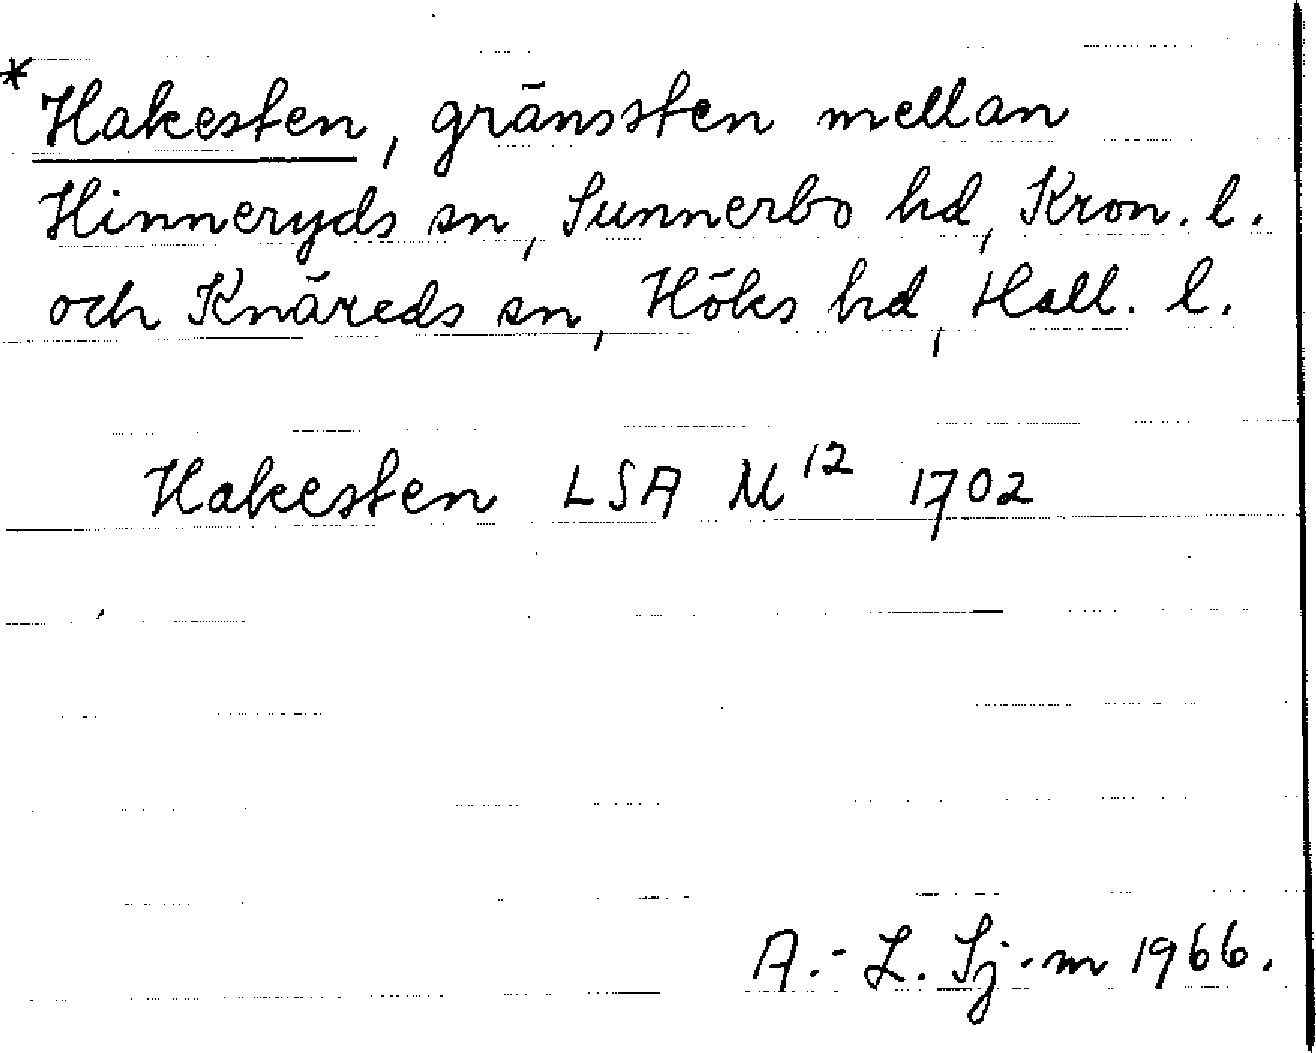 *Hakesten, gränssten mellan
Hinneryds sn, Sunnerbo hd, Kron. l.
och Knäreds sn, Höks hd, Hall. l.
Hakesten LSA M¹² 1702
A.-L. Sj-m 1966.